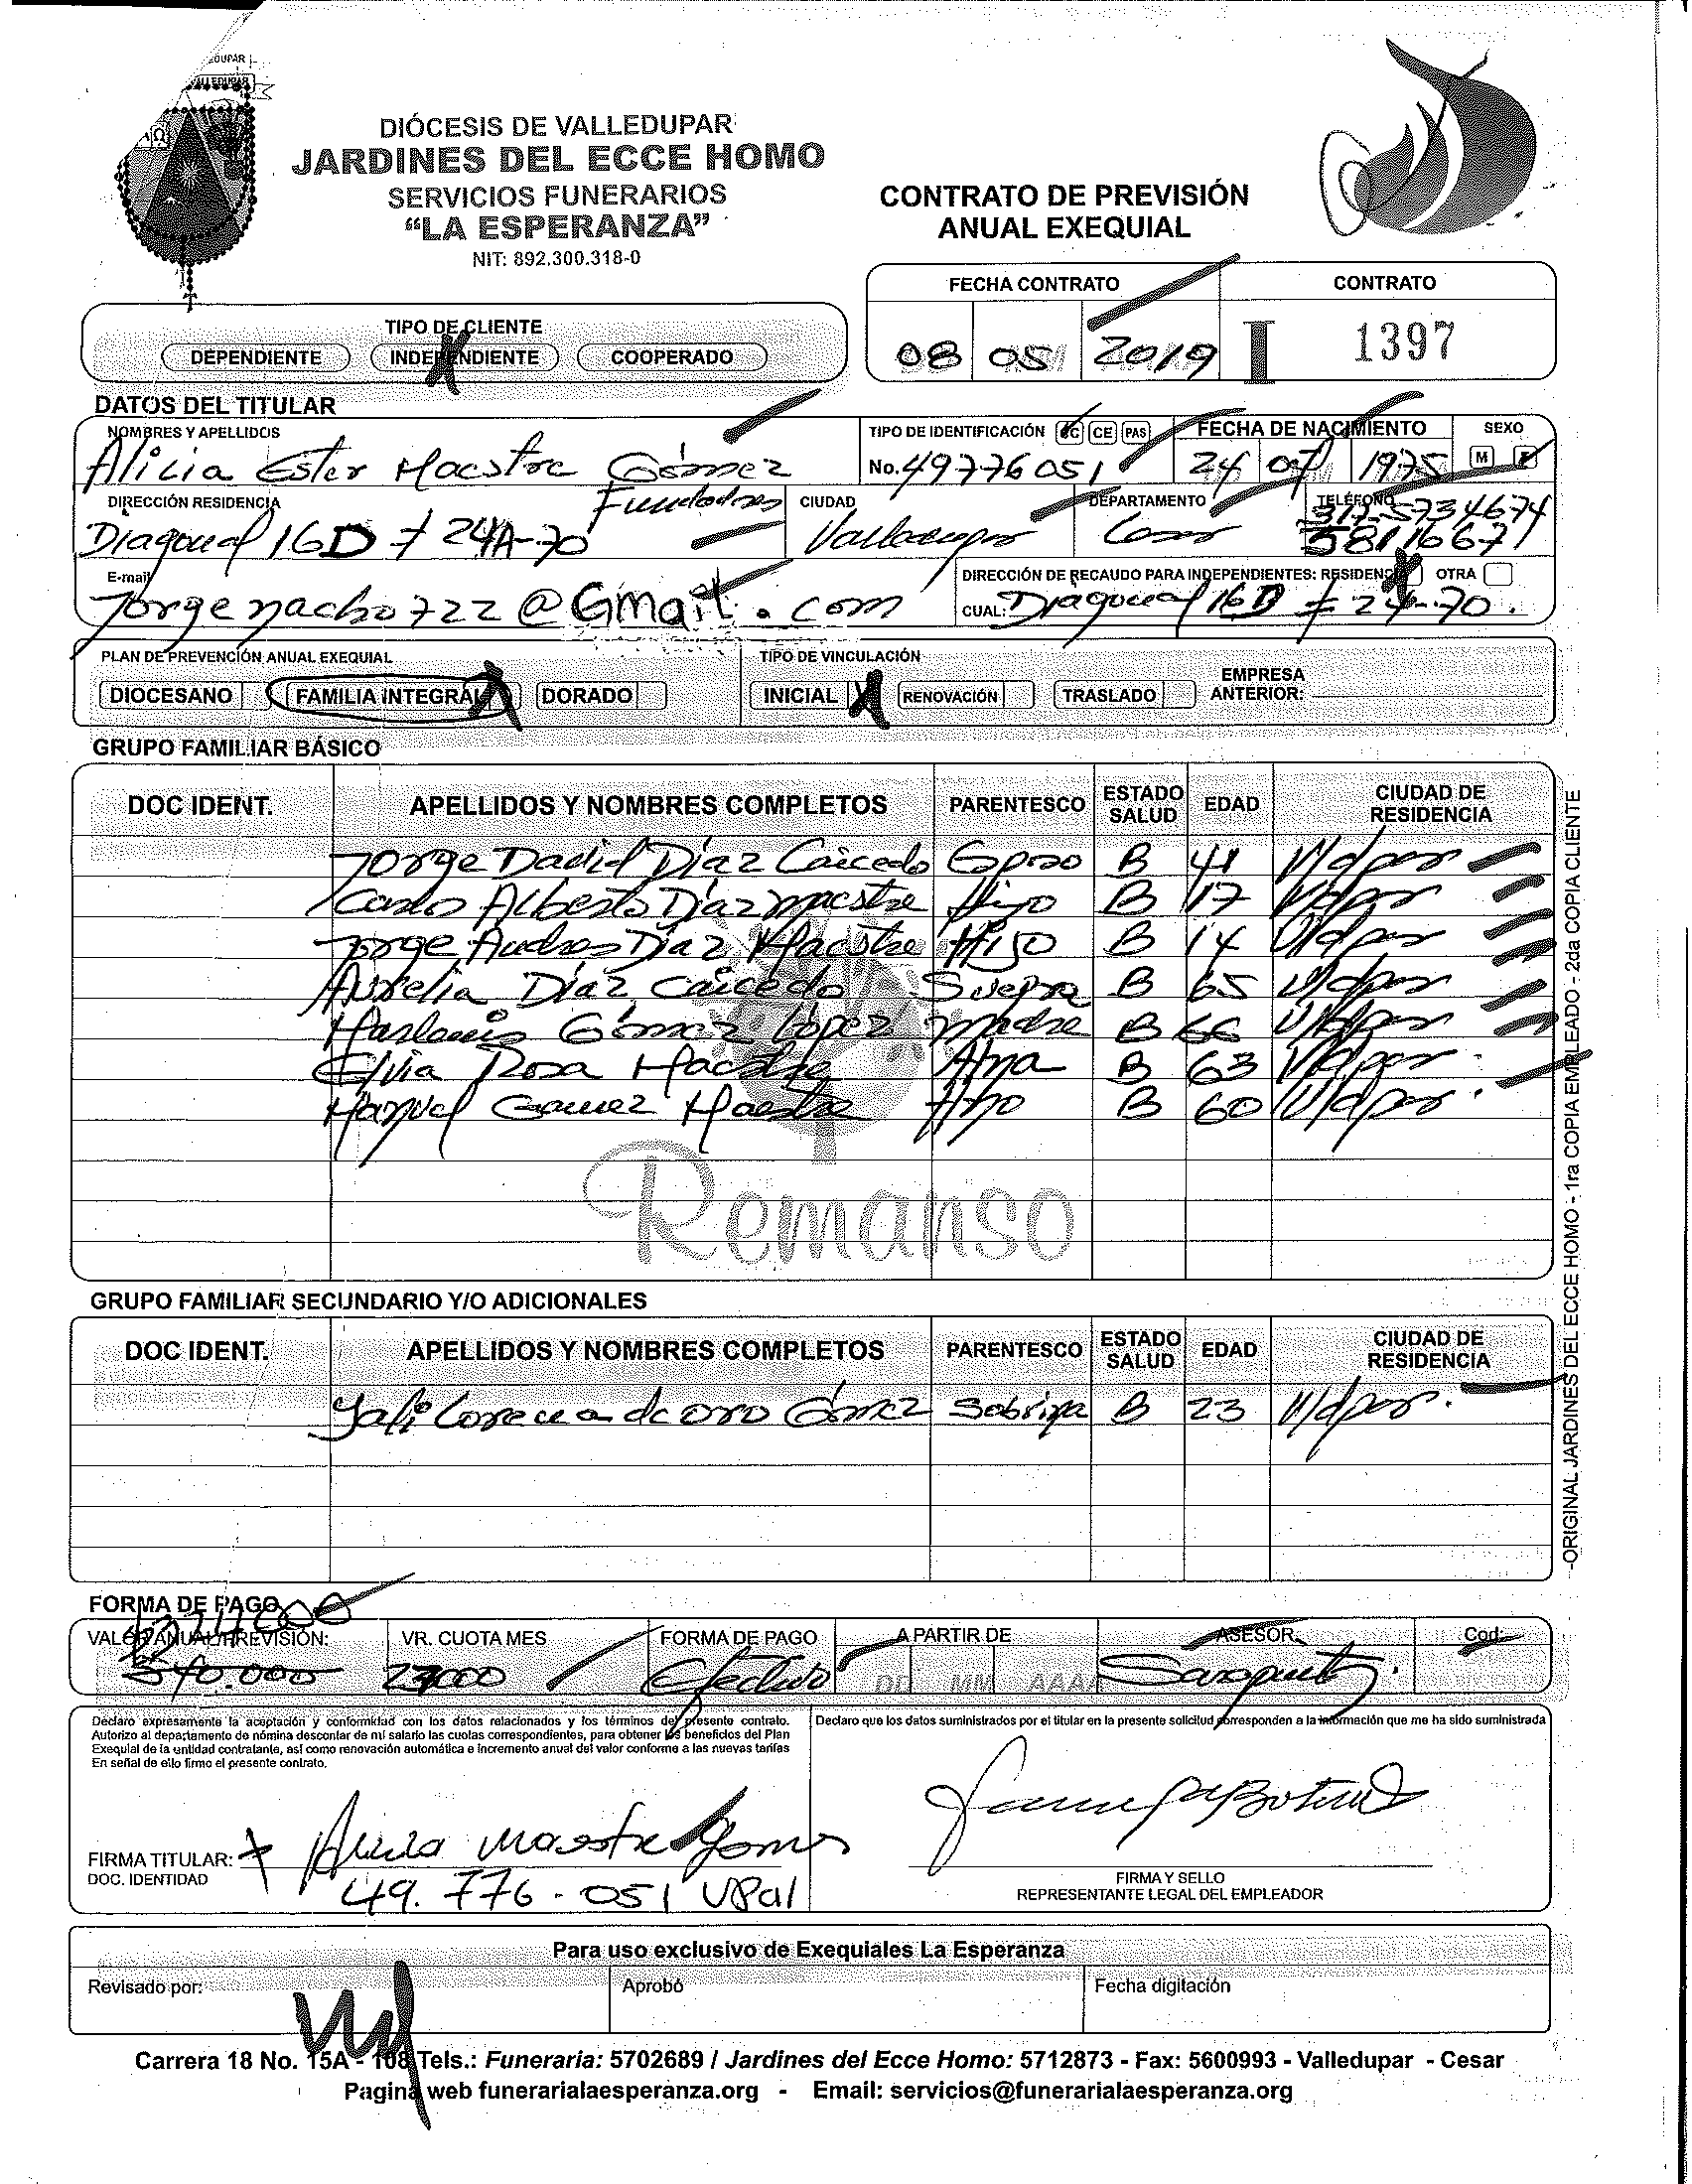 DIÓCESIS DE VALLEDUPAR
JARDINES DEL ECCE HOMO
SERVICIOS FUNERARIOS
“LA ESPERANZA”
NIT: 892.300.318-0
CONTRATO DE PREVISIÓN
ANUAL EXEQUIAL
FECHA CONTRATO CONTRATO
08 05 2019 I 1397
TIPO DE CLIENTE
DEPENDIENTE INDEPENDIENTE X COOPERADO
DATOS DEL TITULAR
NOMBRES Y APELLIDOS TIPO DE IDENTIFICACIÓN CC CE PAS FECHA DE NACIMIENTO SEXO
Alicia Ester Maestre Gómez No. 49776051 24 07 1975 M F
DIRECCIÓN RESIDENCIA Fundadores CIUDAD DEPARTAMENTO TELÉFONO
Diagonal 16D # 24A-70 Valledupar Cesar 317-5734674
5811667
E-mail DIRECCIÓN DE RECAUDO PARA INDEPENDIENTES: RESIDENCIA X OTRA
Jorgenacho722@Gmail.com CUAL: Diagonal 16D # 24-70.
PLAN DE PREVENCIÓN ANUAL EXEQUIAL TIPO DE VINCULACIÓN
DIOCESANO FAMILIA INTEGRAL X DORADO INICIAL X RENOVACIÓN TRASLADO EMPRESA ANTERIOR:
GRUPO FAMILIAR BÁSICO
DOC IDENT. APELLIDOS Y NOMBRES COMPLETOS PARENTESCO ESTADO SALUD EDAD CIUDAD DE RESIDENCIA
Jorge David Díaz Caicedo Esposo B 41 V/dpar
Carlos Alberto Díaz Maestre Hijo B 17 V/dpar
Jorge Andres Díaz Maestre Hijo B 14 V/dpar
Aurelia Díaz Caicedo Suegra B 65 V/dpar
Gómez López Madre B 66 V/dpar
Elvia Rosa Maestre B 63 V/dpar
Manuel Gamez Maestre B 60 V/dpar
Remanso
GRUPO FAMILIAR SECUNDARIO Y/O ADICIONALES
DOC IDENT. APELLIDOS Y NOMBRES COMPLETOS PARENTESCO ESTADO SALUD EDAD CIUDAD DE RESIDENCIA
Lorena de oro Gómez Sobrina B 23 V/dpar.
-ORIGINAL JARDINES DEL ECCE HOMO - 1ra COPIA EMPLEADO - 2da COPIA CLIENTE
FORMA DE PAGO
VALOR ANUAL PREVISIÓN: VR. CUOTA MES FORMA DE PAGO A PARTIR DE ASESOR Cod:
340.000 27000 Efectivo DD MM AAAA
Declaro expresamente la aceptación y conformidad con los datos relacionados y los términos del presente contrato.
Autorizo al departamento de nómina descontar de mi salario las cuotas correspondientes, para obtener los beneficios del Plan
Exequial de la entidad contratante, así como renovación automática e incremento anual del valor conforme a las nuevas tarifas
En señal de ello firmo el presente contrato.
Declaro que los datos suministrados por el titular en la presente solicitud corresponden a la información que me ha sido suministrada
FIRMA TITULAR: Alicia Maestre Gomes
DOC. IDENTIDAD 49.776.051 VPal
FIRMA Y SELLO
REPRESENTANTE LEGAL DEL EMPLEADOR
Para uso exclusivo de Exequiales La Esperanza
Revisado por: Aprobó Fecha digitación
Carrera 18 No. 15A - 108 Tels.: Funeraria: 5702689 / Jardines del Ecce Homo: 5712873 - Fax: 5600993 - Valledupar - Cesar
Pagina web funerarialaesperanza.org - Email: servicios@funerarialaesperanza.org